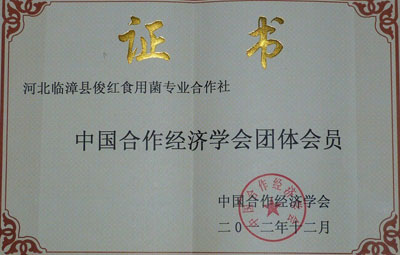 证书
河北临漳县俊红食用菌专业合作社
中国合作经济学会团体会员
中国合作经济学会
二〇一二年十二月
中国合作经济学会